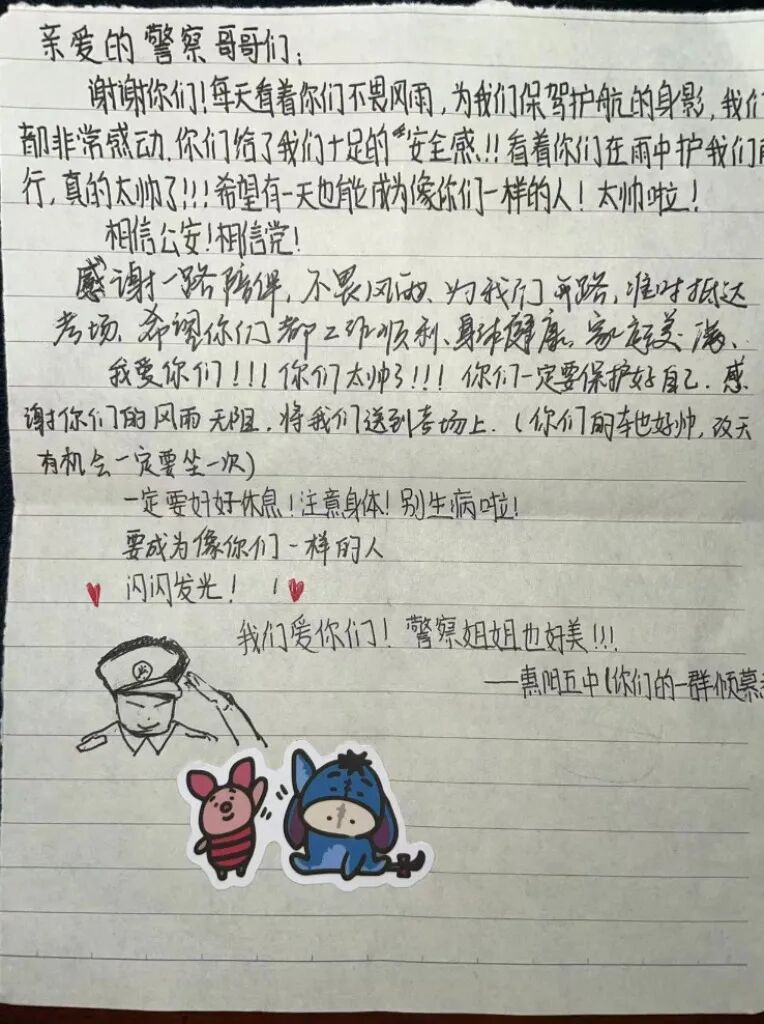 亲爱的警察哥哥们:
谢谢你们!每天看着你们不畏风雨,为我们保驾护航的身影,我们
都非常感动.你们给了我们十足的“安全感.!!看着你们在雨中护我们前
行,真的太帅了!!!希望有一天也能成为像你们一样的人!太帅啦!
相信公安!相信党!
感谢一路陪伴,不畏风雨、为我们开路,准时抵达
考场、希望你们都工作顺利、身体健康、家庭美满、
我爱你们!!!你们太帅了!!!你们一定要保护好自己.感
谢你们的风雨无阻,将我们送到考场上.(你们的车也好帅,改天
有机会一定要坐一次)
一定要好好休息!注意身体!别生病啦!
要成为像你们一样的人
闪闪发光!!
我们爱你们!警察姐姐也好美!!!
——惠阳五中(你们的一群倾慕